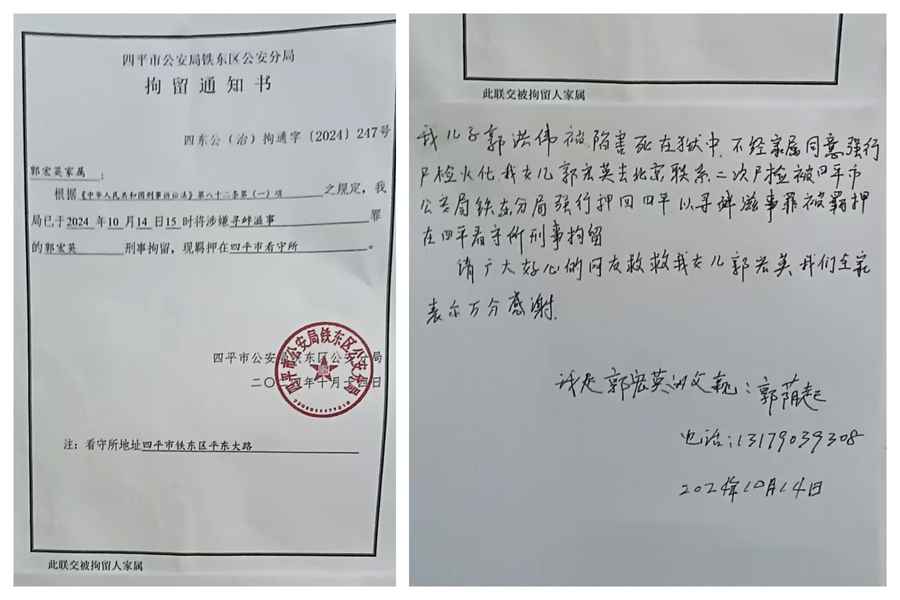 四平市公安局铁东区公安分局
拘留通知书
四东公（治）拘通字〔2024〕247号
郭宏英家属：
根据《中华人民共和国刑事诉讼法》第八十二条第（一）项之规定，我
局已于2024年10月14日15时将涉嫌寻衅滋事罪
的郭宏英刑事拘留，现羁押在四平市看守所。
四平市公安局铁东区公安分局
二〇二四年十月十四日
四平市公安局铁东区公安分局
注：看守所地址四平市铁东区平东大路
此联交被拘留人家属
此联交被拘留人家属
我儿子郭洪伟被陷害死在狱中，不经家属同意强行
尸检火化，我女儿郭宏英去北京联系二次尸检被四平市
公安局铁东分局强行押回四平以寻衅滋事罪被羁押
在四平看守所刑事拘留
请广大好心的网友救救我女儿郭宏英我们全家
表示万分感谢.
我是郭宏英的父亲：郭荫起
电话：13179039308
2024年10月14日